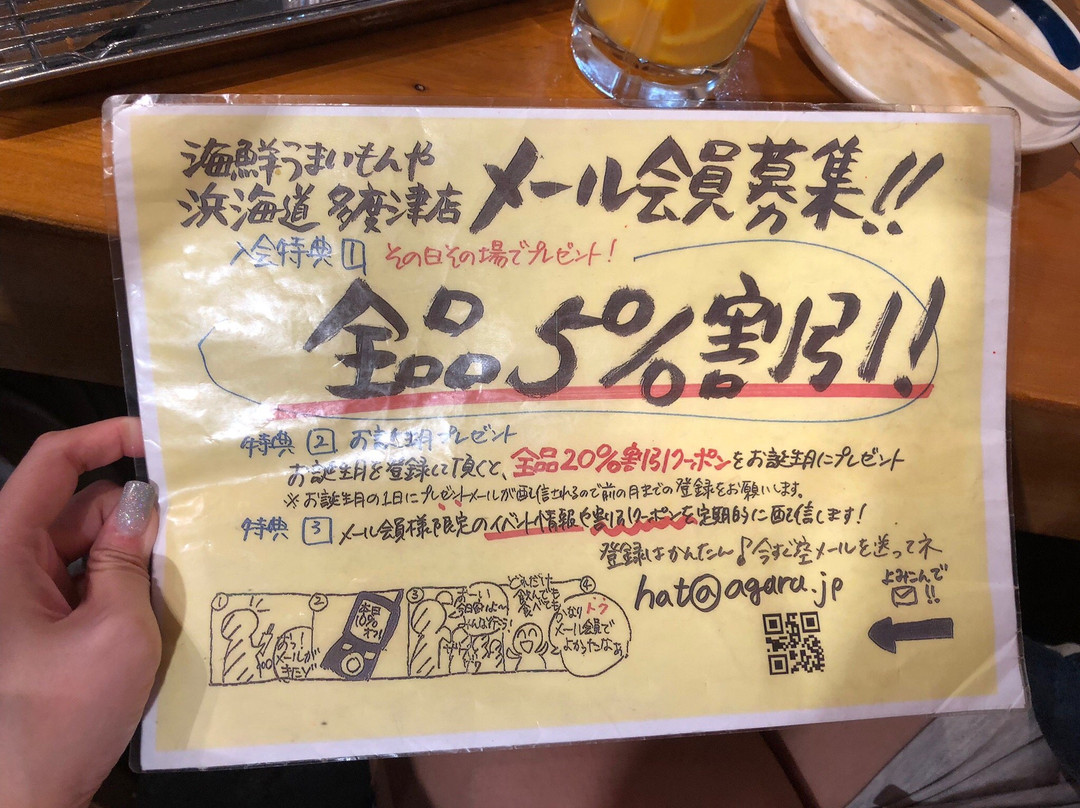 海鮮うまいもんや
浜海道 多度津店
メール会員募集!!
入会特典 1 その日その場でプレゼント!
全品5%割引!!
特典 2 お誕生月プレゼント
お誕生月を登録して頂くと、全品20%割引クーポンをお誕生月にプレゼント
※お誕生月の1日にプレゼントメールが配信されるので前の月までの登録をお願いします。
特典 3 メール会員様限定のイベント情報や割引クーポンを定期的に配信します!
登録はかんたん♪今すぐ空メールを送ってネ
hat@agaru.jp
よみこんで
!!
①
おっ!
メールが
きたゾ
②
本日
10%
オフ!
③
おーい!
今日飲むよ〜
みんな行こう!
どれだけ
飲んでも
食べても
④
かなりトク
メール会員で
よかったなぁ!